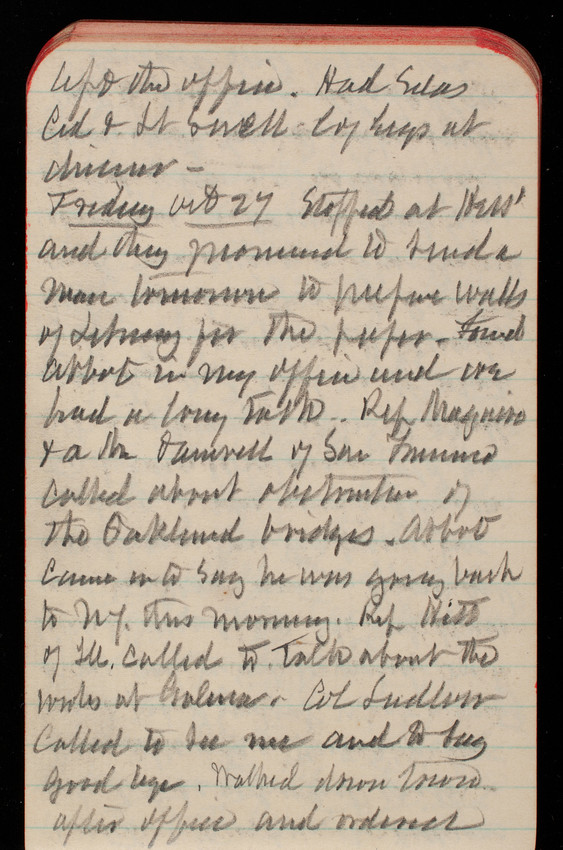 left the office. Had Silas
Col & Lt Sewell at
dinner -
Friday Oct 27 Stopped at Hess'
and they promised to send a
man tomorrow to prepare walls
of Library for the paper. Found
Abbot in my office and we
had a long talk. Rep Maguire
& a Mr Farwell of San Francisco
called about obstruction of
the Oakland bridges. Abbot
came in to say he was going back
to N.Y. this morning. Rep Hitt
of Ill. called to talk about the
works at Galena. Col Ludlow
called to see me and to say
good bye. Walked down town
after office and ordered